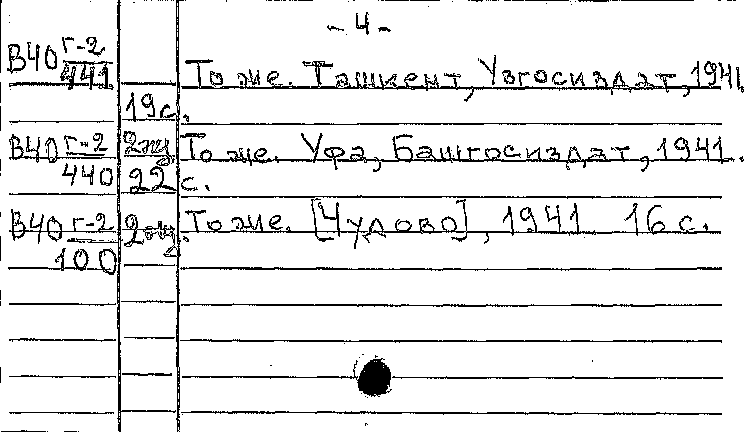 - 4 -
В40 Г-2/441 То же. Ташкент, Узгосиздат, 1941.
19 с.
В40 Г-2/440 2 экз. То же. Уфа, Башгосиздат, 1941.
22 с.
В40 Г-2/100 То же. [Чудово], 1941 16 с.